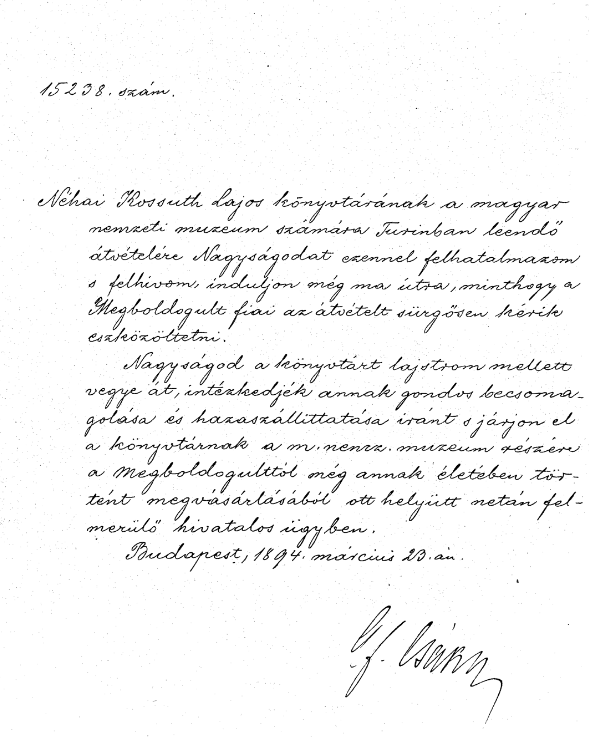 15238. szám.
Néhai Kossuth Lajos könyvtárának a magyar
nemzeti muzeum számára Turinban leendő
átvételére Nagyságodat ezennel felhatalmazom
s felhivom, induljon még ma útra, minthogy a
Megboldogult fiai az átvételt sürgősen kérik
eszközöltetni.
Nagyságod a könyvtárt lajstrom mellett
vegye át, intézkedjék annak gondos becsoma-
golása és hazaszállittatása iránt s járjon el
a könyvtárnak a m. nemz. muzeum részére
a Megboldogulttól még annak életében tör-
tént megvásárlásából ott helyütt netán fel-
merülő hivatalos ügyben.
Budapest, 1894. március 23.-án.
Gf. Csáky